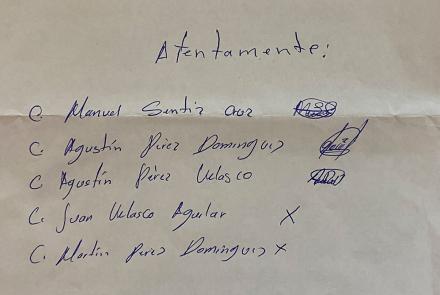 Atentamente:
C. Manuel Sentiz Cruz
C. Agustín Pérez Dominguez
C Agustín Pérez Velasco
C. Juan Velasco Aguilar X
C. Martín Perez Dominguez X